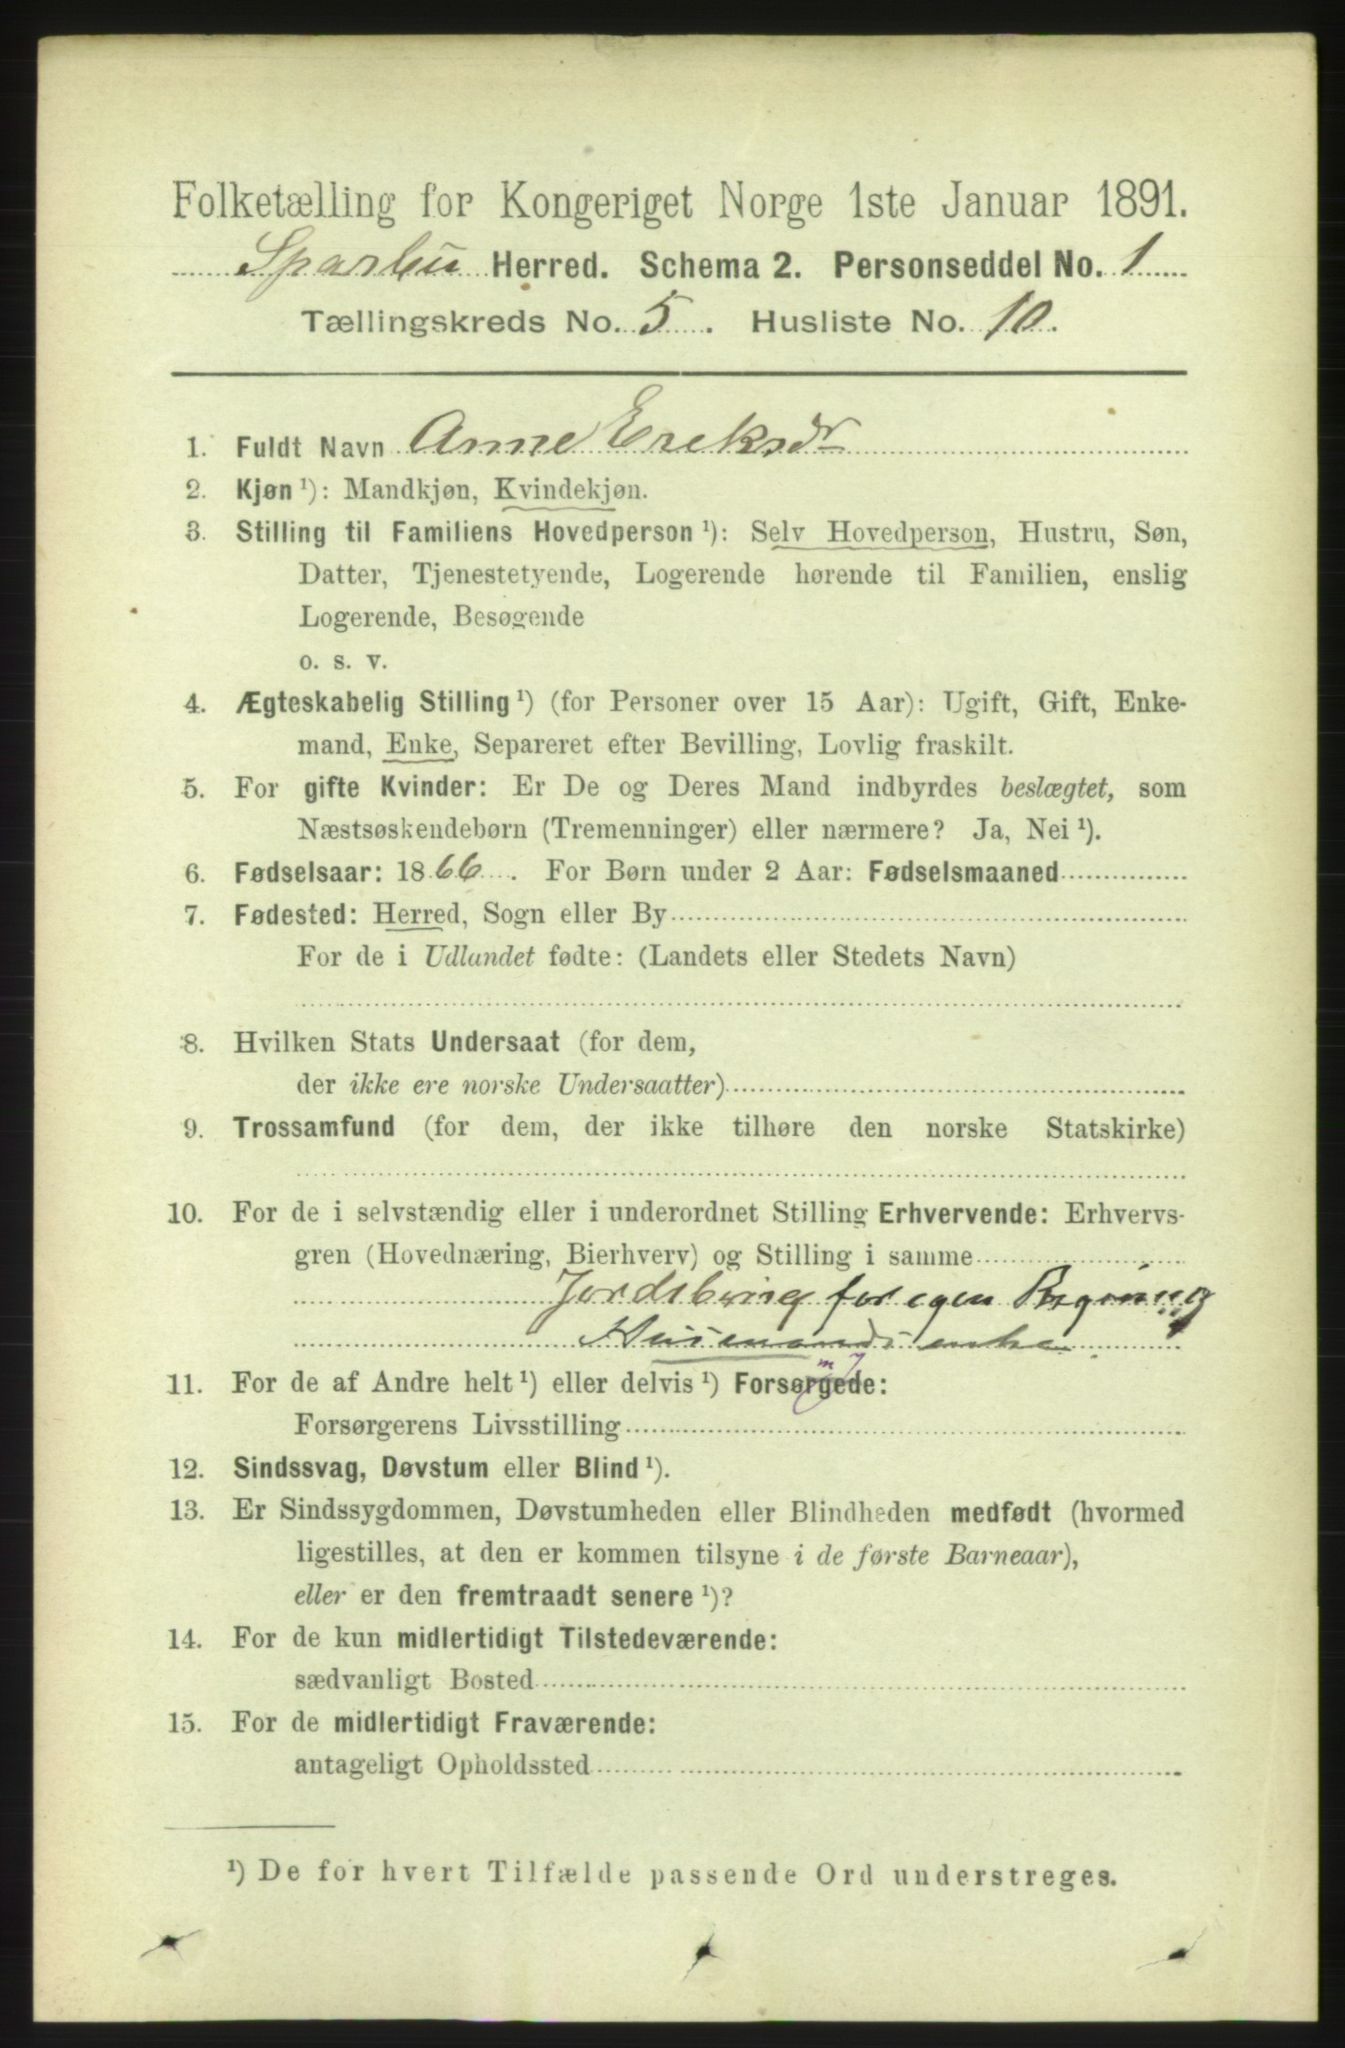 Folketælling for Kongeriget Norge 1ste Januar 1891.
Sparbu Herred. Schema 2. Personseddel No. 1
Tællingskreds No. 5. Husliste No. 10.
1. Fuldt Navn Anne Eriksdr
2. Kjøn ¹): Mandkjøn, Kvindekjøn.
3. Stilling til Familiens Hovedperson ¹): Selv Hovedperson, Hustru, Søn,
Datter, Tjenestetyende, Logerende hørende til Familien, enslig
Logerende, Besøgende
o. s. v.
4. Ægteskabelig Stilling ¹) (for Personer over 15 Aar): Ugift, Gift, Enke-
mand, Enke, Separeret efter Bevilling, Lovlig fraskilt.
5. For gifte Kvinder: Er De og Deres Mand indbyrdes beslægtet, som
Næstsøskendebørn (Tremenninger) eller nærmere? Ja, Nei ¹).
6. Fødselsaar: 1866. For Børn under 2 Aar: Fødselsmaaned
7. Fødested: Herred, Sogn eller By
For de i Udlandet fødte: (Landets eller Stedets Navn)
8. Hvilken Stats Undersaat (for dem,
der ikke ere norske Undersaatter)
9. Trossamfund (for dem, der ikke tilhøre den norske Statskirke)
10. For de i selvstændig eller i underordnet Stilling Erhvervende: Erhvervs-
gren (Hovednæring, Bierhverv) og Stilling i samme
Jordsbrug for egen Regning
Husmandsenke
11. For de af Andre helt ¹) eller delvis ¹) Forsørgede:
Forsørgerens Livsstilling
12. Sindssvag, Døvstum eller Blind ¹).
13. Er Sindssygdommen, Døvstumheden eller Blindheden medfødt (hvormed
ligestilles, at den er kommen tilsyne i de første Barneaar),
eller er den fremtraadt senere ¹)?
14. For de kun midlertidigt Tilstedeværende:
sædvanligt Bosted
15. For de midlertidigt Fraværende:
antageligt Opholdssted
¹) De for hvert Tilfælde passende Ord understreges.